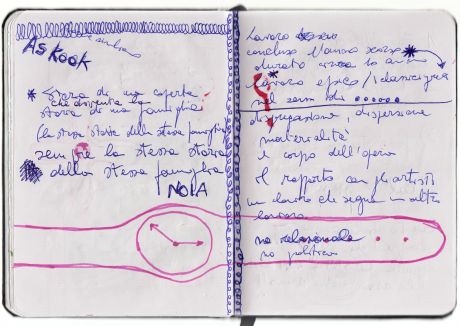 As Kook
Storia di una coperta
che diventa la
storia di una famiglia
la stessa storia della stessa famiglia
sempre la stessa storia
della stessa famiglia
NOIA
Lavoro
concluso l'anno scorso
durato circa 10 anni
lavoro epico /
nel senso di ......
dispersione
materialità
e corpo dell'opera
Il rapporto con gli artisti
un lavoro che segna un altro
lavoro
no relazionale
no politico